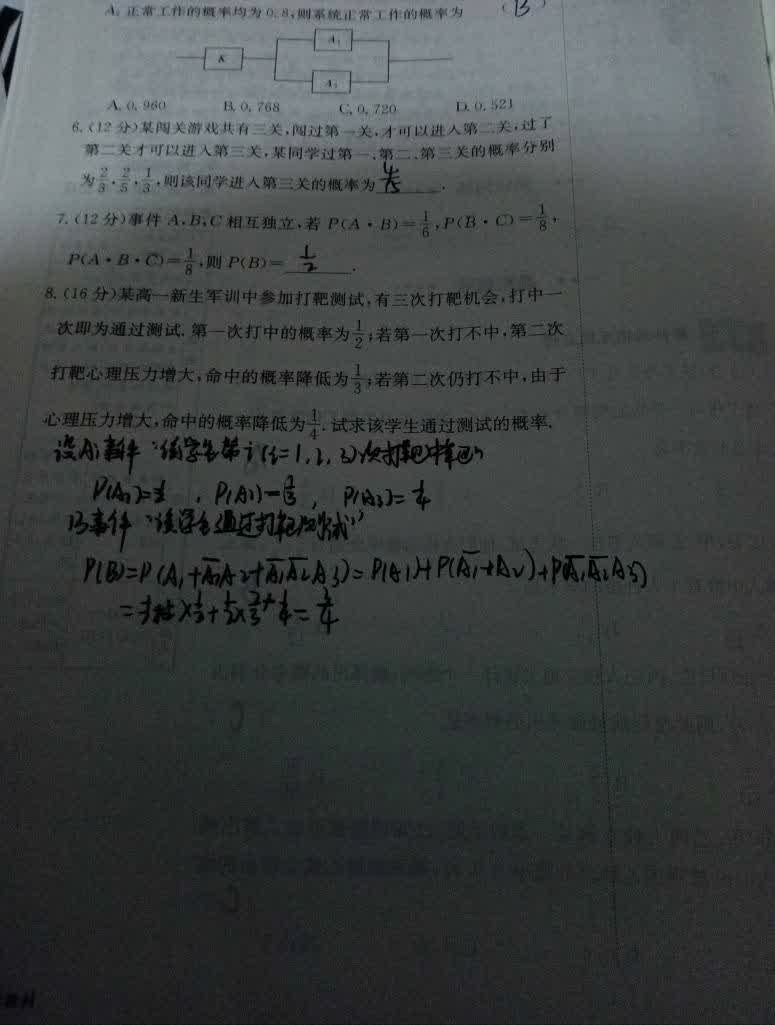 A₂ 正常工作的概率均为0.8,则系统正常工作的概率为 ( B )
K
A₁
A₂
A. 0.960 B. 0.768 C. 0.720 D. 0.521
6. (12分)某闯关游戏共有三关,闯过第一关,才可以进入第二关,过了
第二关才可以进入第三关,某同学过第一、第二、第三关的概率分别
为2/3,2/5,1/3,则该同学进入第三关的概率为 4/15 .
7. (12分)事件 A,B,C 相互独立,若 P(A·B)=1/6,P(B·C)=1/8,
P(A·B·C)=1/8,则 P(B)= 1/2 .
8. (16分)某高一新生军训中参加打靶测试,有三次打靶机会,打中一
次即为通过测试.第一次打中的概率为1/2;若第一次打不中,第二次
打靶心理压力增大,命中的概率降低为1/3;若第二次仍打不中,由于
心理压力增大,命中的概率降低为1/4.试求该学生通过测试的概率.
设Ai事件“该学生第i(i=1,2,3)次打靶中靶”
P(A₁)=1/2,P(A₂)=1/3,P(A₃)=1/4
B事件“该学生通过打靶测试”
P(B)=P(A₁+A̅₁A₂+A̅₁A̅₂A₃)=P(A₁)+P(A̅₁+A₂)+P(A̅₁A̅₂A₃)
×1/3+1/2×2/3×1/4=3/4